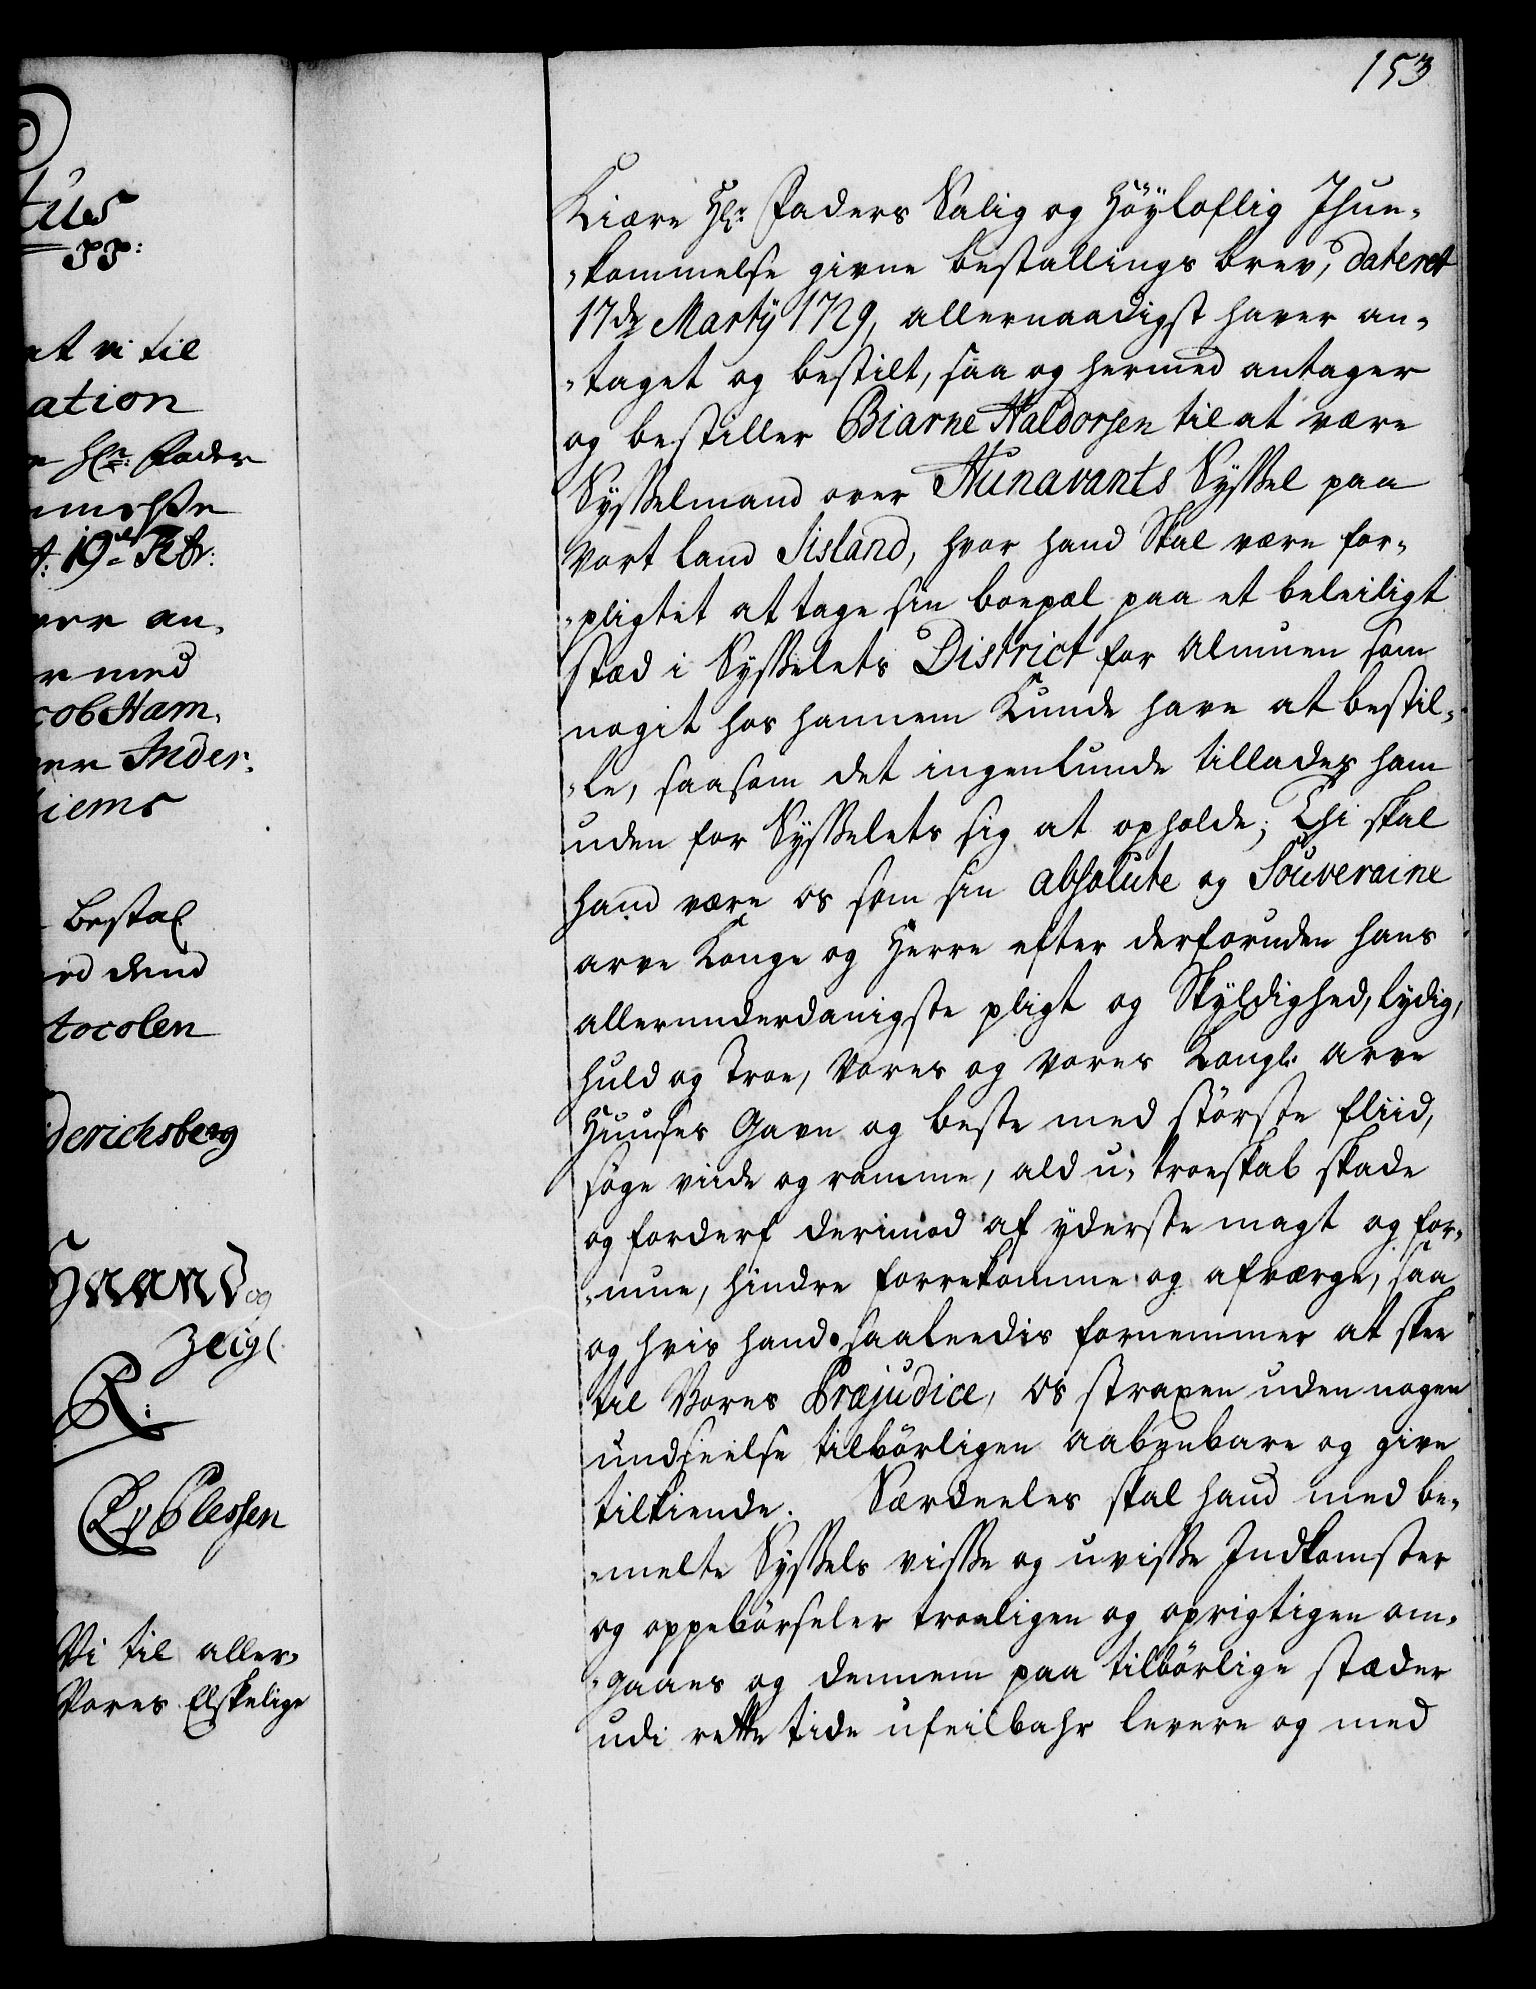 153
Kiære Hr: Faders Salig og Höyloflig Ihu-
-kommelse givne bestallings brev, dateret
17de Martÿ 1729, allernaadigst haver an-
-taget og bestilt, saa og hermed antager
og bestiller Biarne Haldorsen til at være
Sysselmand over Hunavants Syssel paa
Vort land Iisland, hvor hand Skal være for-
-pligtet at tage sin boepæl paa et beleiligt
stæd i Sysselets District for Almuen som
nogit hos hannem Kunde have at bestil-
-le, saasom det ingenlunde tillades ham
uden for Sysselets sig at opholde; Thi skal
hand være os som sin absolute og Souveraine
arve Konge og Herre efter derforuden hans
allerunderdanigste pligt og Skyldighed, lydig,
huld og Troe, Vores og Vores Kongl: arve
Huuses Gavn og beste med störste fliid,
söge viide og ramme, ald u-troeskab skade
og forderf derimod af yderste magt og for-
-mue, hindre forrekomme og afværge, saa
og hvis hand saaleedis fornemmer at skee
til Vores Præjudice, os straxen uden nogen
undseelse tilbörligen aabenbare og give
tilkiende. Særdeeles skal hand med be-
-melte Syssels visse og uvisse Indkomster
og oppebörseler troeligen og oprigtigen om-
-gaaes og dennem paa tilbörlige stæder
udi rette tide ufeilbahr levere og med
tus
pp:
at vi til
ation
Hr: Fader
ver an-
med
cob Ham-
ver Inder-
iems
Bestal
dend
tocolen
derichsberg
Haand og
Zeigl
R:
CvPlessen
Vi til aller-
Vores Elskelige